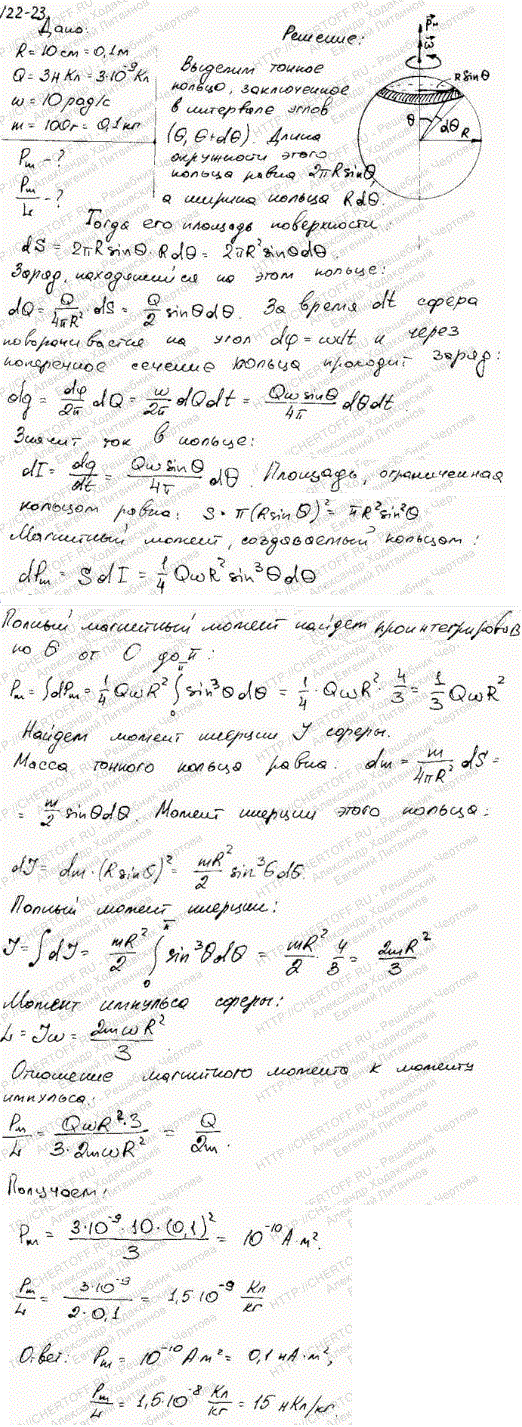 /22-23
Дано:
R = 10 см = 0,1 м
Q = 3 нКл = 3·10⁻⁹ Кл
ω = 10 рад/с
m = 100 г = 0,1 кг
Pm - ?
Pm/L - ?
Решение:
Выделим тонкое
кольцо, заключенное
в интервале углов
(θ, θ+dθ). Длина
окружности этого
кольца равна 2πR sinθ,
а ширина кольца R dθ.
Pm
ω
R sinθ
θ
dθ
R
Тогда его площадь поверхности:
dS = 2πR sinθ · R dθ = 2πR² sinθ dθ.
Заряд, находящийся на этом кольце:
dQ = Q/4πR² dS = Q/2 sinθ dθ. За время dt сфера
поворачивается на угол dφ = ωdt и через
поперечное сечение кольца проходит заряд:
dq = dφ/2π dQ = ω/2π dQ dt = Qω sinθ/4π dθ dt.
Значит ток в кольце:
dI = dq/dt = Qω sinθ/4π dθ. Площадь, ограниченная
кольцом равна: S = π(R sinθ)² = πR² sin²θ
Магнитный момент, создаваемый кольцом:
dPm = S dI = 1/4 QωR² sin³θ dθ
Полный магнитный момент найдем проинтегрировов
по θ от 0 до π:
Pm = ∫dPm = 1/4 QωR² ∫₀^π sin³θ dθ = 1/4 · QωR² · 4/3 = 1/3 QωR²
Найдем момент инерции J сферы.
Масса тонкого кольца равна: dm = m/4πR² dS =
= m/2 sinθ dθ. Момент инерции этого кольца:
dJ = dm · (R sinθ)² = mR²/2 sin³θ dθ.
Полный момент инерции:
J = ∫dJ = mR²/2 ∫₀^π sin³θ dθ = mR²/2 · 4/3 = 2mR²/3
Момент импульса сферы:
L = Jω = 2mωR²/3
Отношение магнитного момента к моменту
импульса:
Pm/L = QωR²·3/3·2mωR² = Q/2m.
Получаем:
Pm = 3·10⁻⁹ · 10 · (0,1)²/3 = 10⁻¹⁰ А·м².
Pm/L = 3·10⁻⁹/2·0,1 = 1,5·10⁻⁹ Кл/кг
Ответ: Pm = 10⁻¹⁰ А м² = 0,1 нА·м²,
Pm/L = 1,5·10⁻⁸ Кл/кг = 15 нКл/кг.
HTTP://CHERTOFF.RU - Решебник Чертова
Александр Ходаковский
Евгений Питиримов